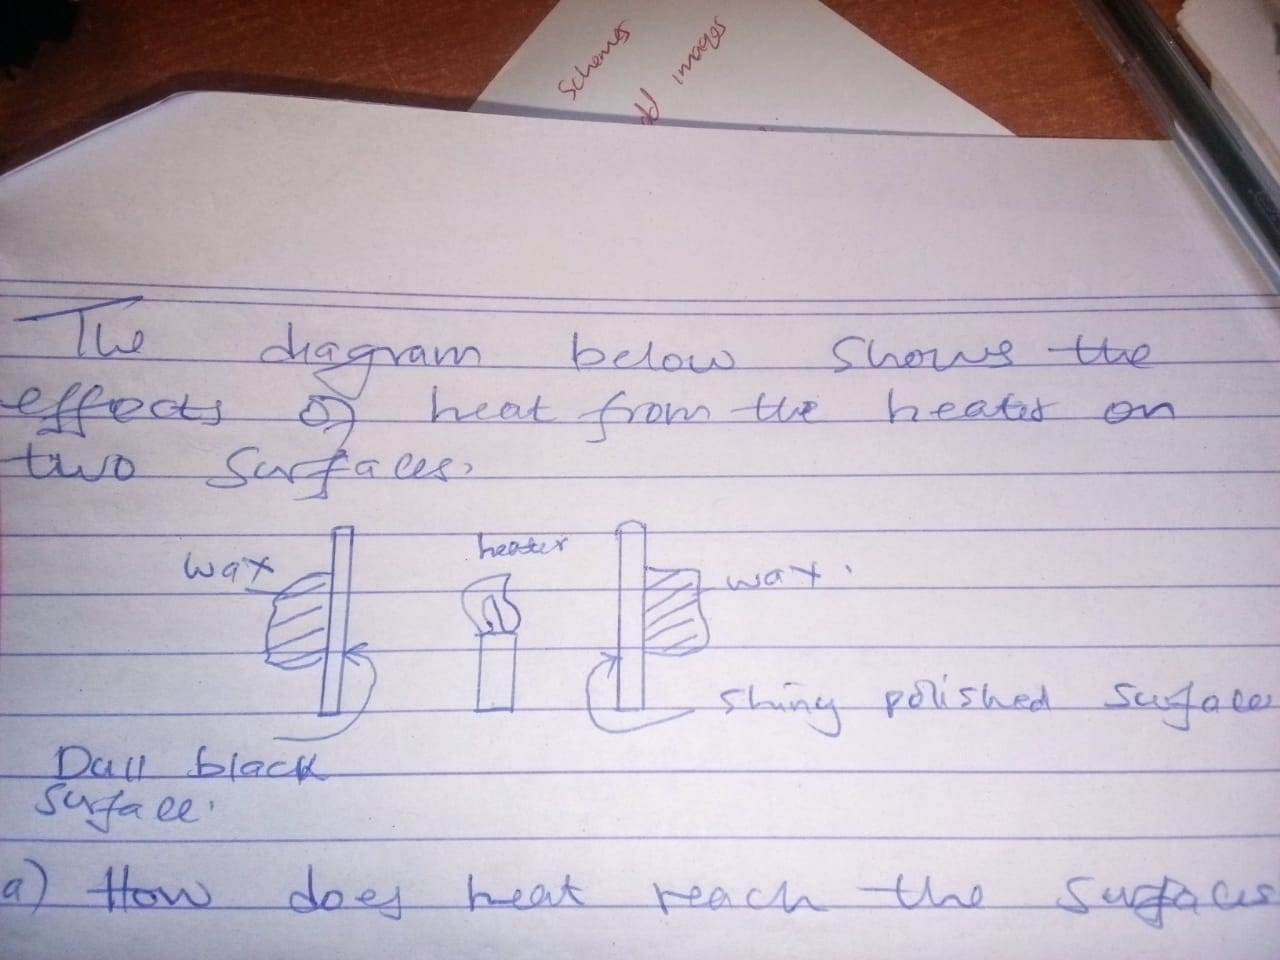 Schemes
dd images
The diagram below shows the
effects of heat from the heater on
two surfaces.
heater
wax
wax.
shiny polished surfaces
Dull black
surface.
a) How does heat reach the surfaces